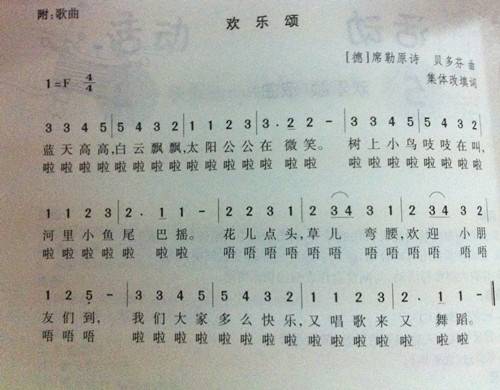 附：歌曲
欢乐颂
［德］席勒原诗 贝多芬 曲
1=F 4/4
集体改填词
3 3 4 5 | 5 4 3 2 | 1 1 2 3 | 3· 2 2 － | 3 3 4 5 | 5 4 3 2 |
蓝天高高，白云飘飘，太阳公公在 微笑。 树上小鸟吱吱在叫，
啦 啦 啦 啦 啦 啦 啦 啦 啦 啦 啦 啦 啦 啦 啦 啦 啦 啦 啦 啦 啦 啦 啦
1 1 2 3 | 2· 1 1 － | 2 2 3 1 | 2 3 4 3 1 | 2 3 4 3 2 |
河里小鱼尾 巴摇。 花儿点头，草儿 弯腰，欢迎 小朋
啦 啦 啦 啦 啦 啦 啦 唔 唔 唔 唔 唔 唔 唔 唔 唔 唔 唔 唔
1 2 5 － | 3 3 4 5 | 5 4 3 2 | 1 1 2 3 | 2· 1 1 － ‖
友们到， 我们大家多么快乐，又唱歌来又 舞蹈。
唔 唔 唔 啦 啦 啦 啦 啦 啦 啦 啦 啦 啦 啦 啦 啦 啦 啦